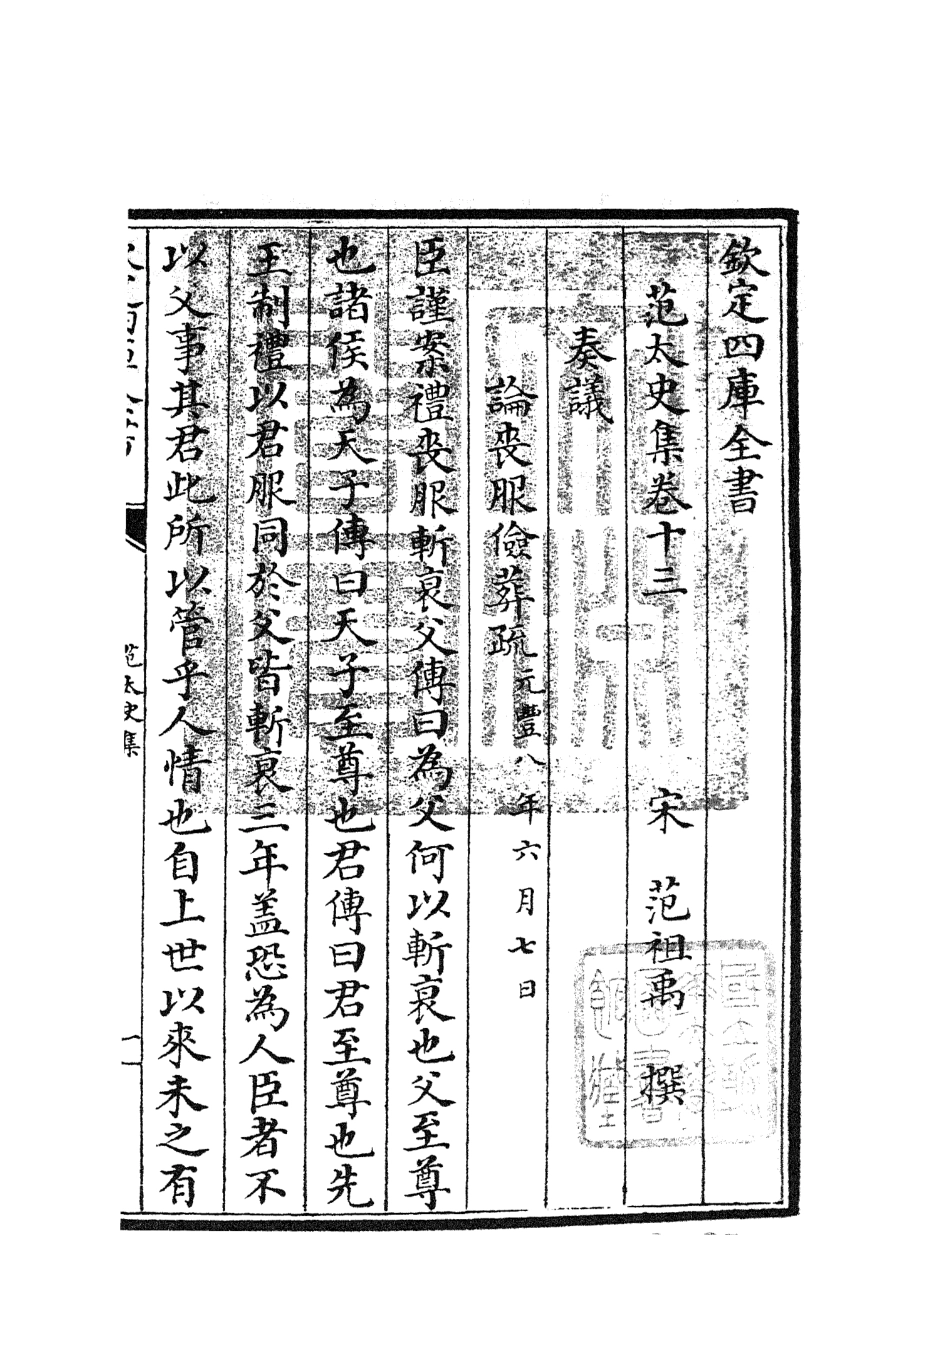 欽定四庫全書
范太史集卷十三
宋 范祖禹 撰
奏議
論喪服儉葬疏元豐八年六月七日
臣謹案禮喪服斬衰父傳曰為父何以斬衰也父至尊
也諸侯為天子傳曰天子至尊也君傳曰君至尊也先
王制禮以君服同於父皆斬衰三年蓋恐為人臣者不
以父事其君此所以管乎人情也自上世以來未之有
范太史集